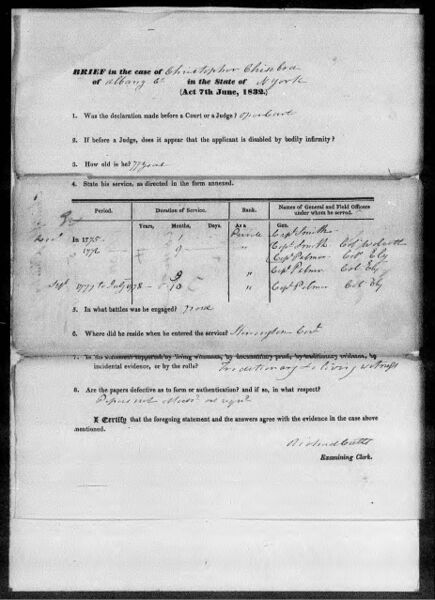 BRIEF in the case of Christopher
of Albany Co in the State of N York
(Act 7th June, 1832.)
1. Was the declaration made before a Court or a Judge? open Court
2. If before a Judge, does it appear that the applicant is disabled by bodily infirmity?
3. How old is he? 77 years
4. State his service, as directed in the form annexed.
Period. Duration of Service. Rank. Names of General and Field Officers under whom he served.
Years, Months, Days. As a Gen.
In 1775 Private Capt Smith
" 1776 " Capt Smith Col
Capt Palmer Col Ely
9 " Capt Palmer Col Ely
Sept 1777 to July 1778 10 " Capt Palmer Col Ely
5. In what battles was he engaged? None
6. Where did he reside when he entered the service? Stonington Cont
7. In his statement supported by living witnesses, by documentary proof, by traditionary evidence, by
incidental evidence, or by the rolls? Traditionary & living witness
8. Are the papers defective as to form or authentication? and if so, in what respect?
Papers not
I Certify that the foregoing statement and the answers agree with the evidence in the case above
mentioned.
Richard Cutts
Examining Clerk.